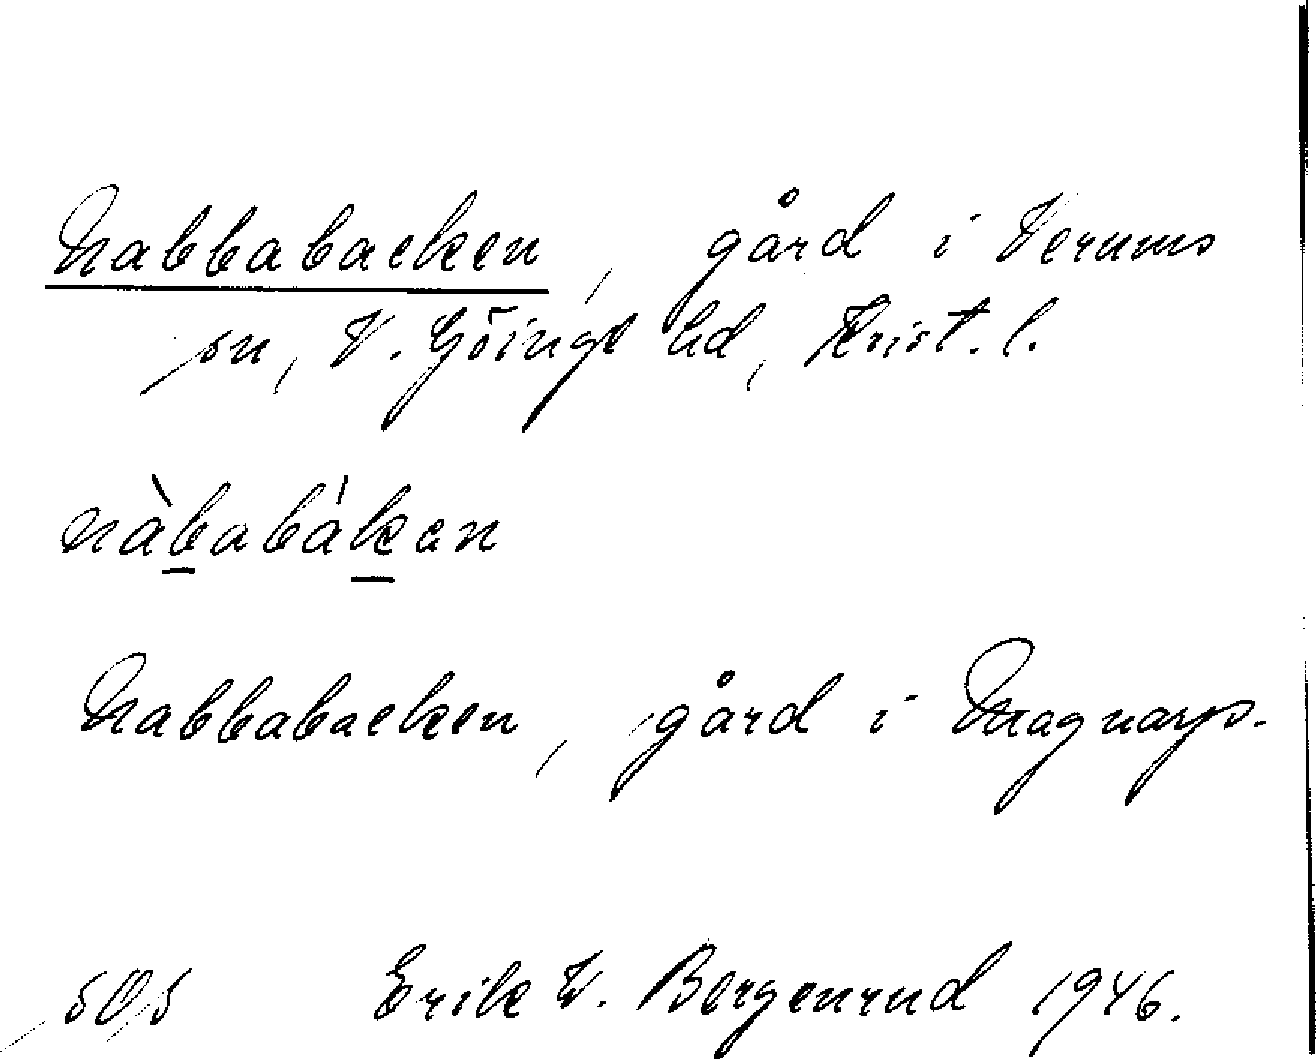 Nabbabacken, gård i Verums
sn, V. Göinge hd, Krist. l.
nàbabákan
Nabbabacken, gård i Magnarp.
Erik W. Bergenrud 1946.